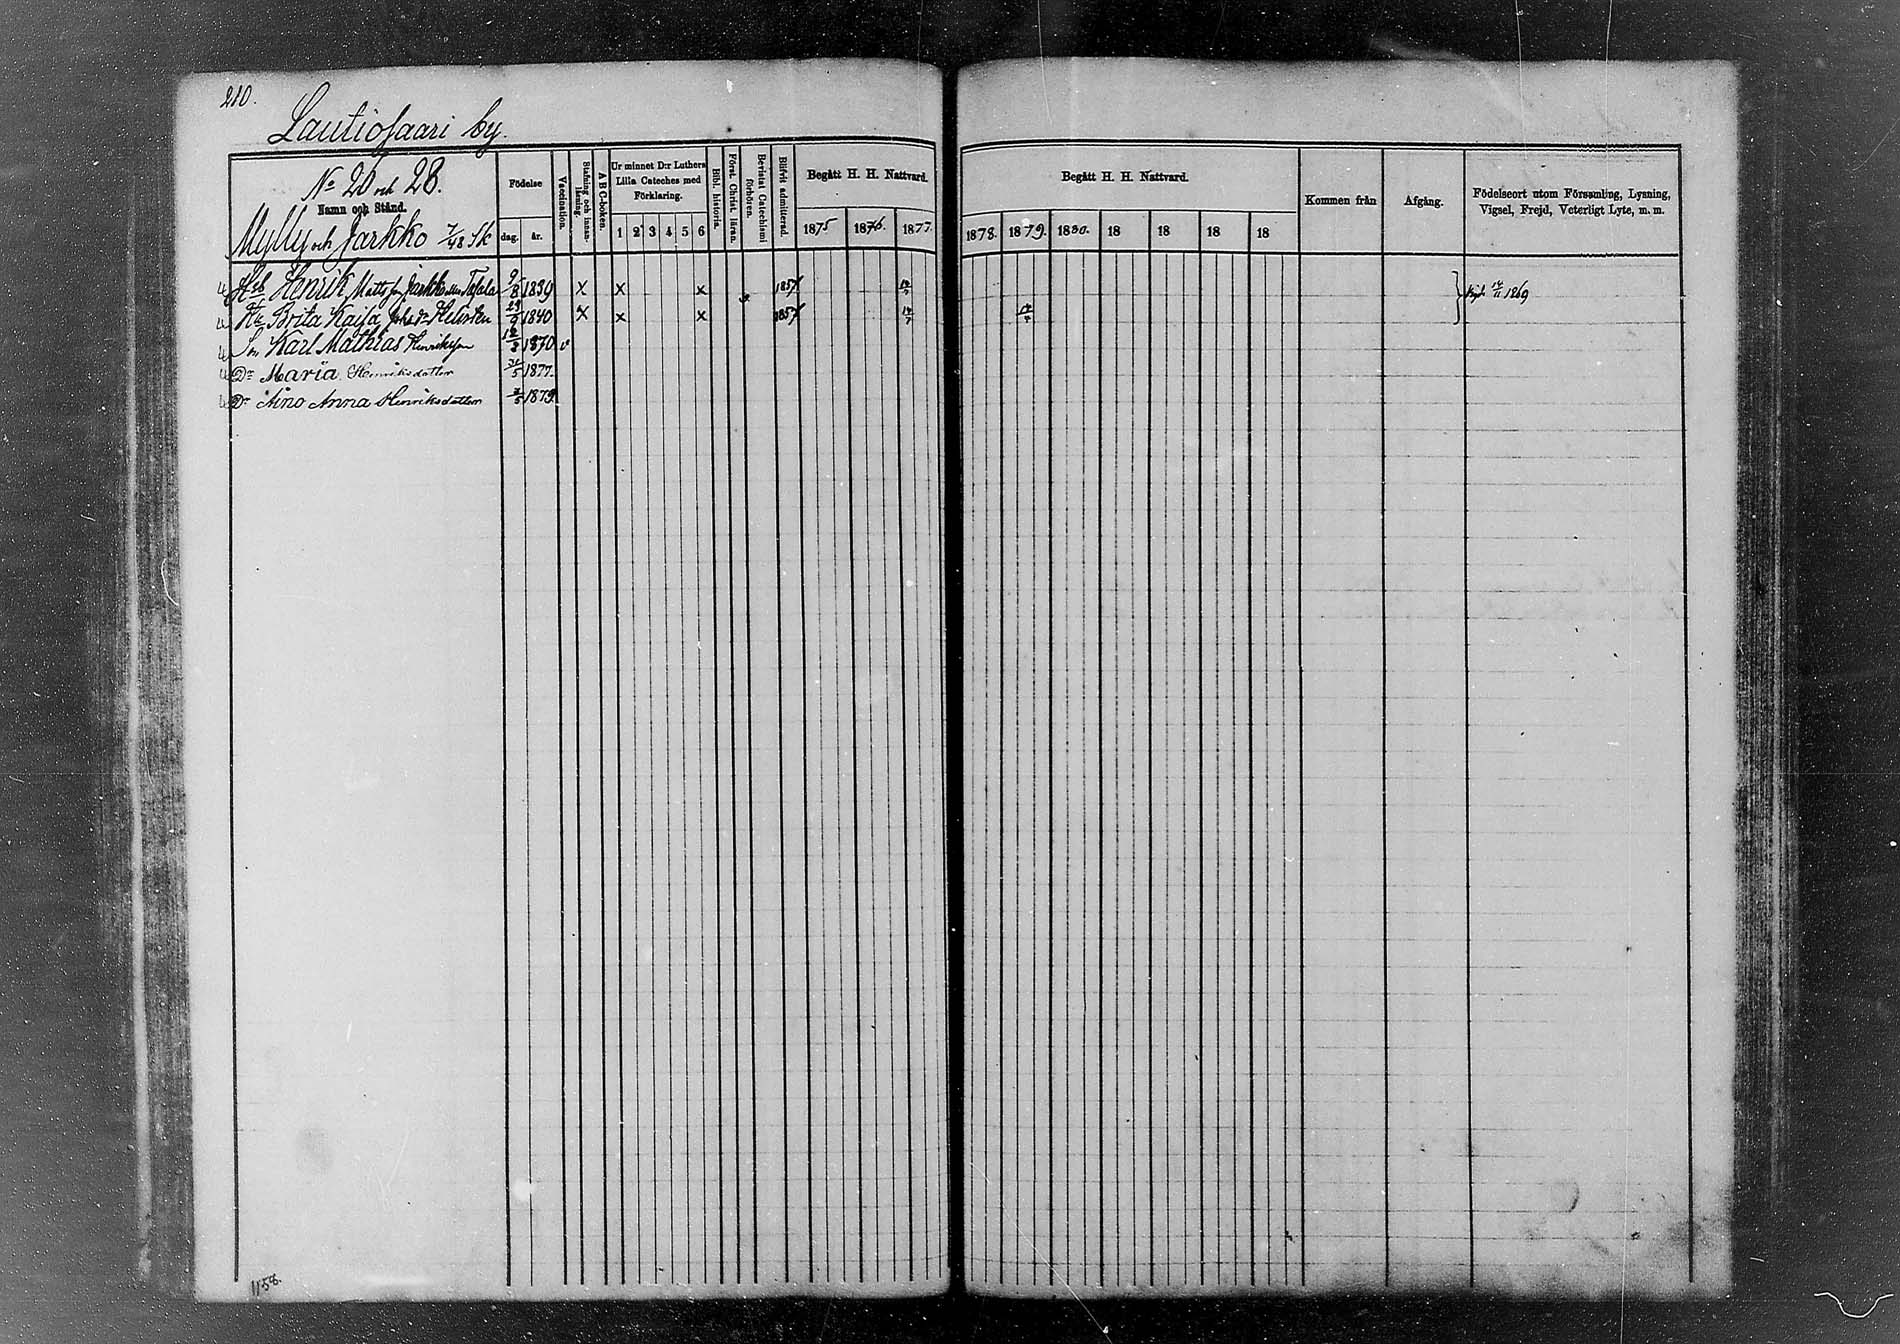 210.
Lautiosaari by.
No 20 och 28.
Namn och Stånd.
Mylly och Jarkko 7/48 Sk
Födelse
dag. år.
Vaccination.
Stafning och innan-läsning.
A B C-boken.
Ur minnet D:r Luthers
Lilla Cateches med
Förklaring.
1 2 3 4 5 6
Bibl. historia.
Först. Christ. läran.
Bevistat Catechismi förhören.
Blifvit admitterad.
Begått H. H. Nattvard.
1875 1876. 1877.
Begått H. H. Nattvard.
1878. 1879. 1880. 18 18 18 18
Kommen från
Afgång.
Födelseort utom Församling, Lysning,
Vigsel, Frejd, Veterligt Lyte, m. m.
Henrik Mattsson Jarkko 9/8 1839 x x x 1857
Brita Kajsa 1840 x x x 1857
Son Karl Mathias Henriksson 1870 v
Dr Maria Henriksdotter 1877.
Dr Aino Anna Henriksdotter 1879.
1869
1158.